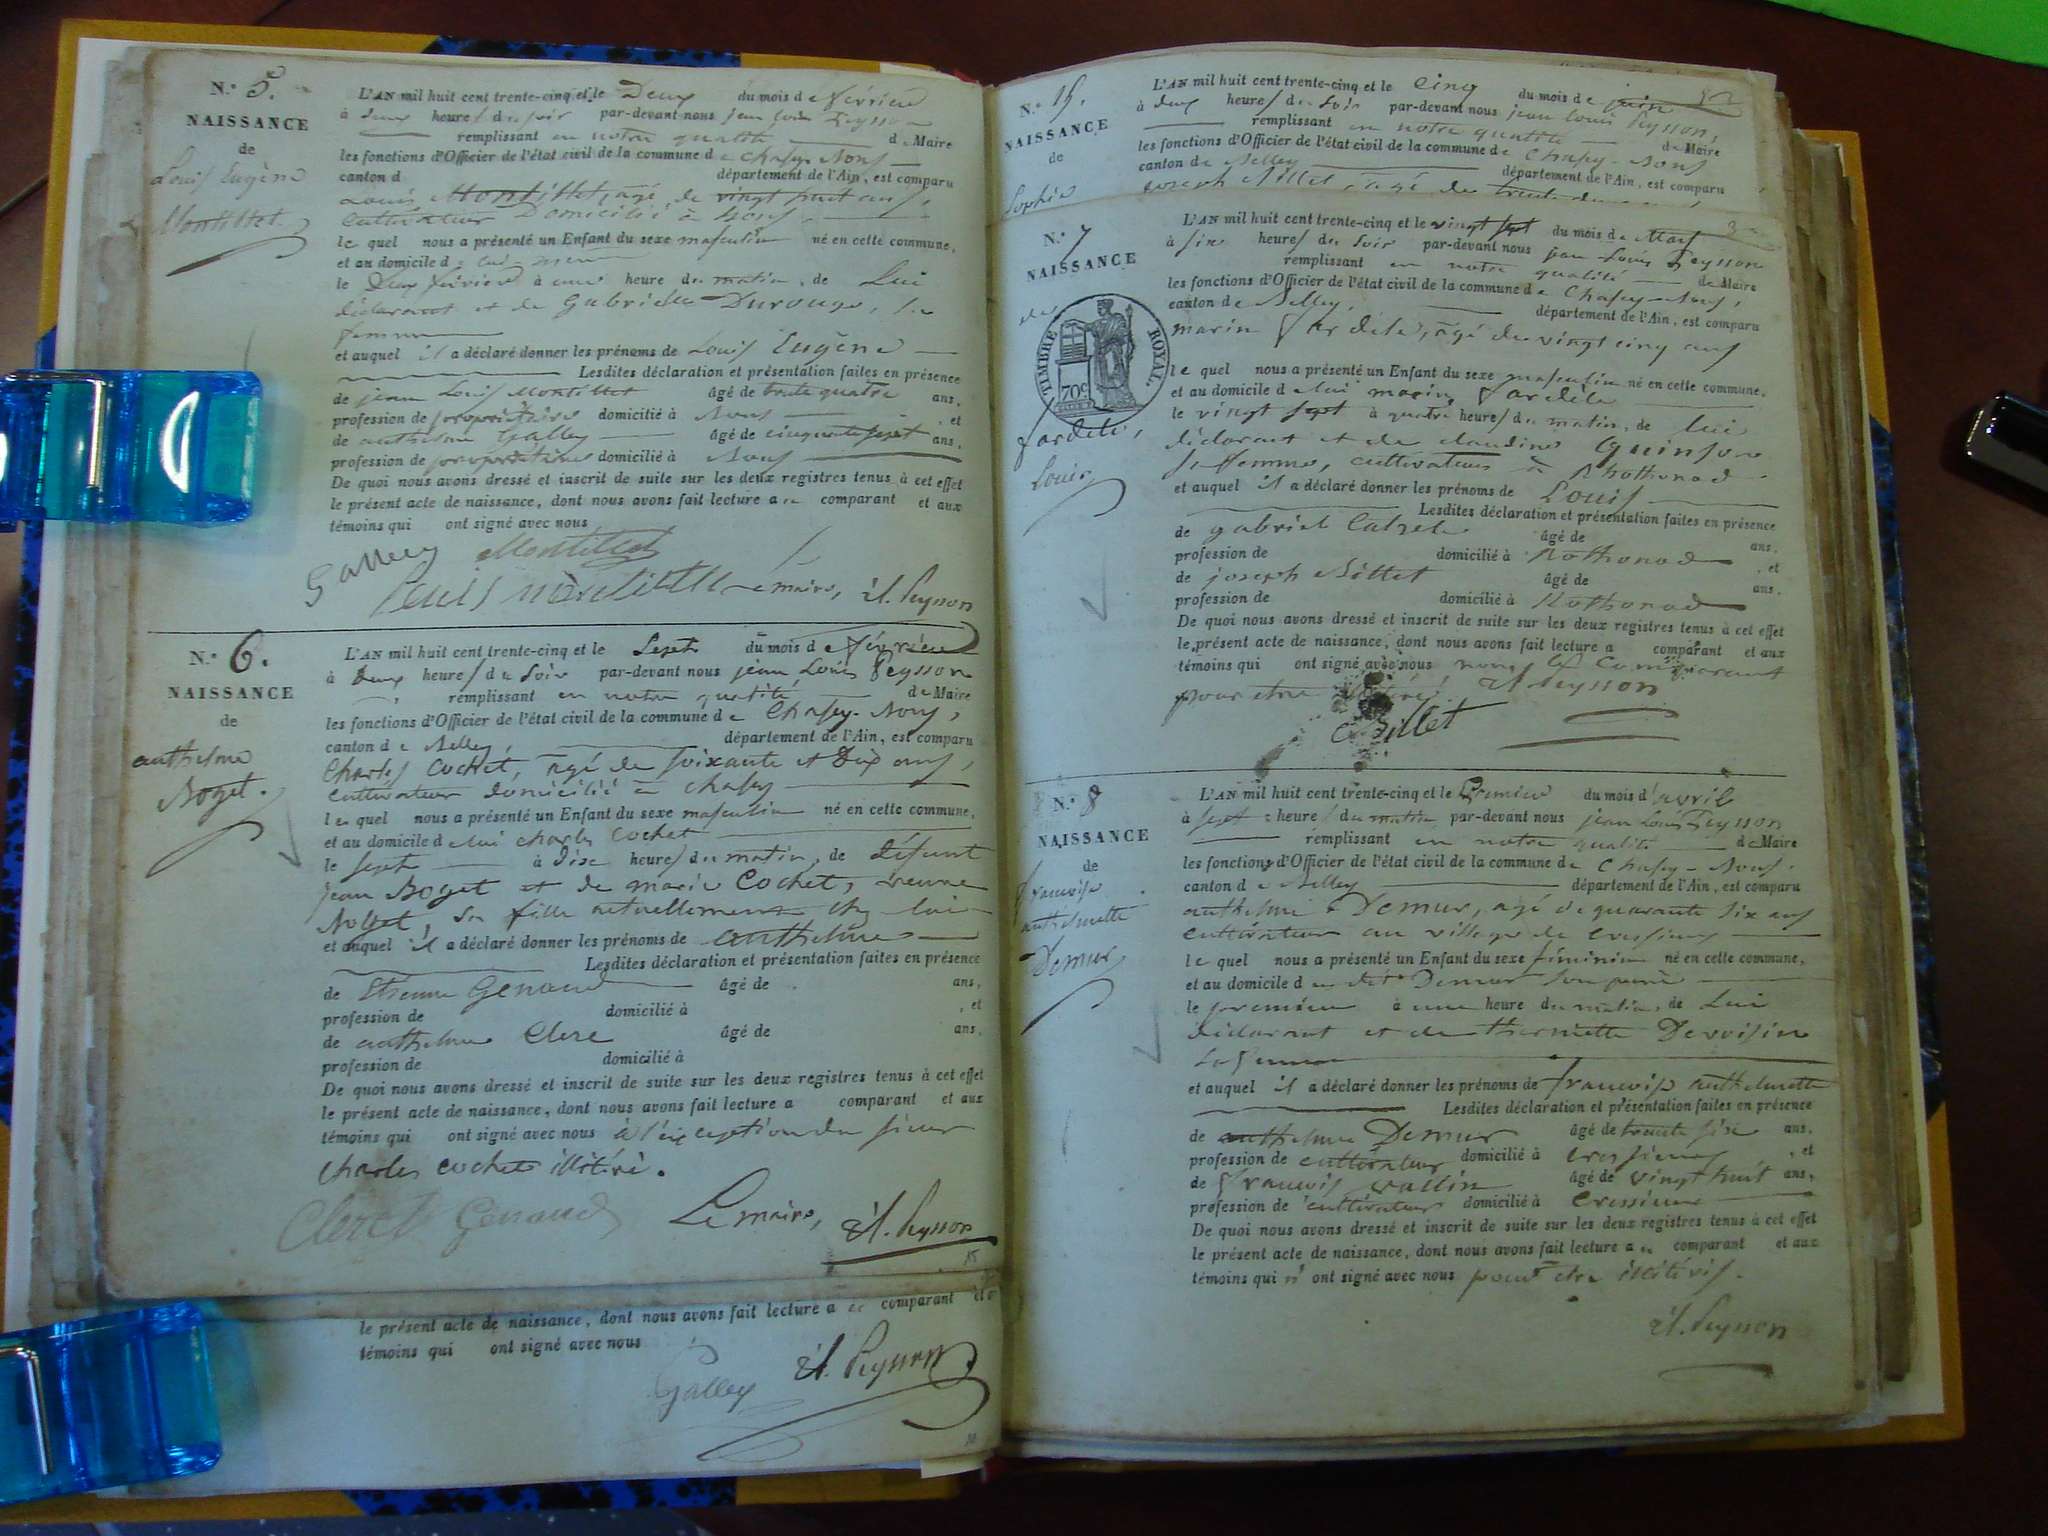 N.° 5.
NAISSANCE
de
Louis Eugène
Montillet.
L'AN mil huit cent trente-cinq et le Deux du mois de février
à deux heures du soir par-devant nous jean Louis Peysson
remplissant en notre qualité de Maire
les fonctions d'Officier de l'état civil de la commune de Chasey-Nons
canton d département de l'Ain, est comparu
Louis Montillet, agé de vingt huit ans,
Cultivateur Domicilié à Nons,
le quel nous a présenté un Enfant du sexe masculin né en cette commune,
et au domicile de lui-meme
le Deux février à une heure du matin, de Lui
déclarant et de Gabrielle Durouge, sa
femme
et auquel il a déclaré donner les prénoms de Louis Eugène
Lesdites déclaration et présentation faites en présence
de jean Louis Montillet âgé de trente quatre ans,
profession de propriétaire domicilié à Nons, et
de anthelme Galley âgé de cinquante sept ans,
profession de propriétaire domicilié à Nons
De quoi nous avons dressé et inscrit de suite sur les deux registres tenus à cet effet
le présent acte de naissance, dont nous avons fait lecture au comparant et aux
témoins qui ont signé avec nous
Galley Montillet
Louis Montillet Le maire, J.L. Peysson
N.° 6.
NAISSANCE
de
anthelme
Boget.
L'AN mil huit cent trente-cinq et le Sept du mois de février
à deux heures du soir par-devant nous jean Louis Peysson
remplissant en notre qualité de Maire
les fonctions d'Officier de l'état civil de la commune de Chasey-Nons,
canton de Belley, département de l'Ain, est comparu
Charles Cochet, agé de soixante et dix ans,
cultivateur domicilié à Chasey
le quel nous a présenté un Enfant du sexe masculin né en cette commune,
et au domicile de lui Charles Cochet
le sept à dix heures du matin, de Défunt
jean Boget et de marie Cochet, veuve
Boget, sa fille actuellement chez lui
et auquel il a déclaré donner les prénoms de anthelme
Lesdites déclaration et présentation faites en présence
de Etienne Genaud âgé de ans,
profession de domicilié à , et
de anthelme Clerc âgé de ans,
profession de domicilié à
De quoi nous avons dressé et inscrit de suite sur les deux registres tenus à cet effet
le présent acte de naissance, dont nous avons fait lecture a comparant et aux
témoins qui ont signé avec nous à l'exception du sieur
Charles cochet illitéré.
Clerc Genaud Le maire, J.L. Peysson
le présent acte de naissance, dont nous avons fait lecture a comparant et
témoins qui ont signé avec nous
Galley J.L. Peysson
N.° 15.
NAISSANCE
de
Sophie
L'AN mil huit cent trente-cinq et le cinq du mois de juin
à deux heures du soir par-devant nous jean Louis Peysson,
remplissant en notre qualité de Maire
les fonctions d'Officier de l'état civil de la commune de Chasey-Nons
canton de Belley département de l'Ain, est comparu
joseph Billet, agé de
N.° 7
NAISSANCE
de
TIMBRE ROYAL.
70c
fardele,
Louis,
L'AN mil huit cent trente-cinq et le vingt sept du mois de Mars
à six heures du soir par-devant nous jean Louis Peysson
remplissant en notre qualité de Maire
les fonctions d'Officier de l'état civil de la commune de Chasey-Nons,
canton de Belley, département de l'Ain, est comparu
marin fardele, agé de vingt cinq ans
le quel nous a présenté un Enfant du sexe masculin né en cette commune,
et au domicile de lui marin fardele
le vingt sept à quatre heures du matin, de lui
déclarant et de claudine Quinson
sa femme, cultivateurs à Rhotonod
et auquel il a déclaré donner les prénoms de Louis
Lesdites déclaration et présentation faites en présence
de gabriel âgé de ans,
profession de domicilié à Rothonod, et
de joseph Billet âgé de ans,
profession de domicilié à Rothonod
De quoi nous avons dressé et inscrit de suite sur les deux registres tenus à cet effet
le présent acte de naissance, dont nous avons fait lecture a comparant et aux
témoins qui ont signé avec nous non le comparant
pour etre J.L. Peysson
Billet
N.° 8
NAISSANCE
de
françoise
anthelmette
Demur,
L'AN mil huit cent trente-cinq et le Premier du mois d'avril
à sept heures du matin par-devant nous jean Louis Peysson
remplissant en notre qualité de Maire
les fonctions d'Officier de l'état civil de la commune de Chasey-Nons.
canton de Belley département de l'Ain, est comparu
anthelme Demur, agé de quarante six ans
cultivateur au village de cressieux
le quel nous a présenté un Enfant du sexe féminin né en cette commune,
et au domicile du dit Demur son père
le premier à une heure du matin, de Lui
déclarant et de thomette Devoisin
sa femme
et auquel il a déclaré donner les prénoms de françoise anthelmette
Lesdites déclaration et présentation faites en présence
de anthelme Demur âgé de trente six ans,
profession de cultivateur domicilié à cressieux, et
de François vallin âgé de vingt huit ans,
profession de cultivateur domicilié à Cressieux
De quoi nous avons dressé et inscrit de suite sur les deux registres tenus à cet effet
le présent acte de naissance, dont nous avons fait lecture au comparant et aux
témoins qui n'ont signé avec nous pour etre illitérés.
J.L. Peysson